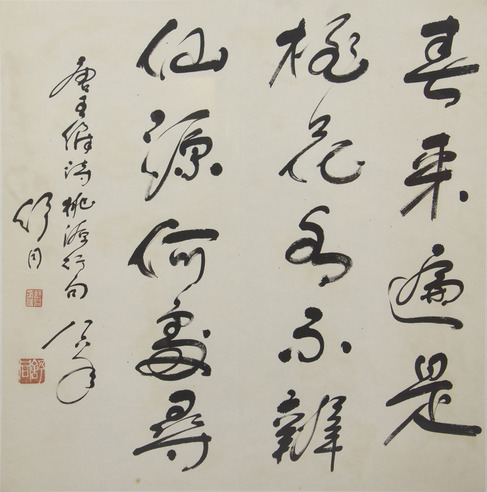 春来遍是
桃花水不辨
仙源何處尋
唐王維詩桃源行句
舒同